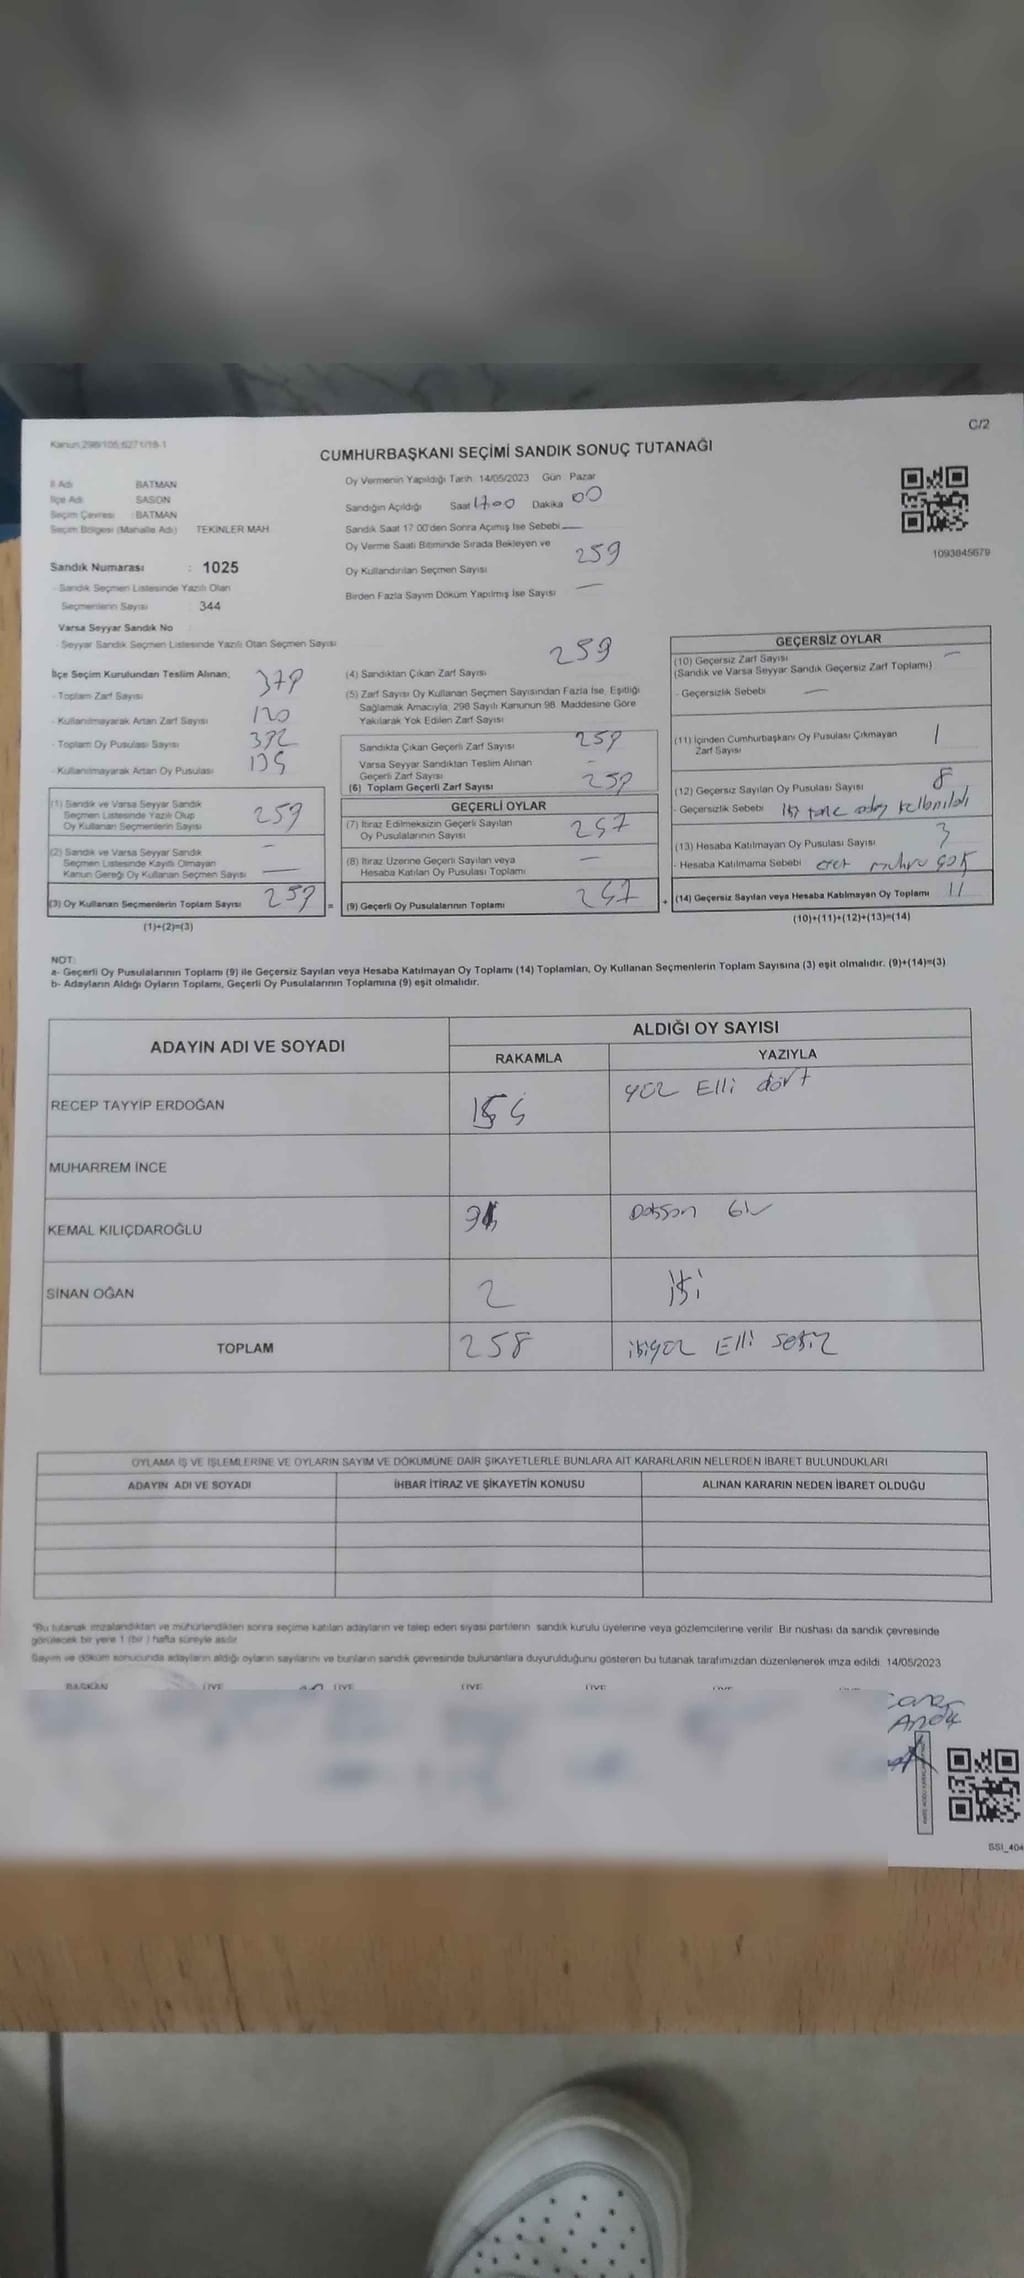 C/2
Kanun:298/105,6271/18-1
CUMHURBAŞKANI SEÇİMİ SANDIK SONUÇ TUTANAĞI
İl Adı : BATMAN
İlçe Adı : SASON
Seçim Çevresi : BATMAN
Seçim Bölgesi (Mahalle Adı) TEKİNLER MAH.
Sandık Numarası : 1025
- Sandık Seçmen Listesinde Yazılı Olan
Seçmenlerin Sayısı 344
Varsa Seyyar Sandık No
- Seyyar Sandık Seçmen Listesinde Yazılı Olan Seçmen Sayısı
Oy Vermenin Yapıldığı Tarih 14/05/2023 Gün Pazar
Sandığın Açıldığı Saat 1700 Dakika 00
Sandık Saat 17.00'den Sonra Açımış İse Sebebi —
Oy Verme Saati Bitiminde Sırada Bekleyen ve
Oy Kullandırılan Seçmen Sayısı 259
Birden Fazla Sayım Döküm Yapılmış İse Sayısı —
1093845679
İlçe Seçim Kurulundan Teslim Alınan;
- Toplam Zarf Sayısı 379
- Kullanılmayarak Artan Zarf Sayısı 120
- Toplam Oy Pusulası Sayısı
- Kullanılmayarak Artan Oy Pusulası
(1) Sandık ve Varsa Seyyar Sandık
Seçmen Listesinde Yazılı Olup
Oy Kullanan Seçmenlerin Sayısı 259
(2) Sandık ve Varsa Seyyar Sandık
Seçmen Listesinde Kayıtlı Olmayan
Kanun Gereği Oy Kullanan Seçmen Sayısı —
(3) Oy Kullanan Seçmenlerin Toplam Sayısı 259 =
(1)+(2)=(3)
(4) Sandıktan Çıkan Zarf Sayısı 259
(5) Zarf Sayısı Oy Kullanan Seçmen Sayısından Fazla İse, Eşitliği
Sağlamak Amacıyla, 298 Sayılı Kanunun 98. Maddesine Göre
Yakılarak Yok Edilen Zarf Sayısı
Sandıkta Çıkan Geçerli Zarf Sayısı 259
Varsa Seyyar Sandıktan Teslim Alınan
Geçerli Zarf Sayısı -
(6) Toplam Geçerli Zarf Sayısı 259
GEÇERLİ OYLAR
(7) İtiraz Edilmeksizin Geçerli Sayılan
Oy Pusulalarının Sayısı 247
(8) İtiraz Üzerine Geçerli Sayılan veya
Hesaba Katılan Oy Pusulası Toplamı —
(9) Geçerli Oy Pusulalarının Toplamı 247 +
GEÇERSİZ OYLAR
(10) Geçersiz Zarf Sayısı —
(Sandık ve Varsa Seyyar Sandık Geçersiz Zarf Toplamı)
- Geçersizlik Sebebi —
(11) İçinden Cumhurbaşkanı Oy Pusulası Çıkmayan
Zarf Sayısı 1
(12) Geçersiz Sayılan Oy Pusulası Sayısı 8
- Geçersizlik Sebebi
(13) Hesaba Katılmayan Oy Pusulası Sayısı 3
- Hesaba Katılmama Sebebi
(14) Geçersiz Sayılan veya Hesaba Katılmayan Oy Toplamı 11
(10)+(11)+(12)+(13)=(14)
NOT:
a- Geçerli Oy Pusulalarının Toplamı (9) ile Geçersiz Sayılan veya Hesaba Katılmayan Oy Toplamı (14) Toplamları, Oy Kullanan Seçmenlerin Toplam Sayısına (3) eşit olmalıdır. (9)+(14)=(3)
b- Adayların Aldığı Oyların Toplamı, Geçerli Oy Pusulalarının Toplamına (9) eşit olmalıdır.
ADAYIN ADI VE SOYADI
ALDIĞI OY SAYISI
RAKAMLA YAZIYLA
RECEP TAYYİP ERDOĞAN yüz Elli dört
MUHARREM İNCE
KEMAL KILIÇDAROĞLU
SİNAN OĞAN 2 iki
TOPLAM 258 ikiyüz Elli sekiz
OYLAMA İŞ VE İŞLEMLERİNE VE OYLARIN SAYIM VE DÖKÜMÜNE DAİR ŞİKAYETLERLE BUNLARA AİT KARARLARIN NELERDEN İBARET BULUNDUKLARI
ADAYIN ADI VE SOYADI İHBAR İTİRAZ VE ŞİKAYETİN KONUSU ALINAN KARARIN NEDEN İBARET OLDUĞU
*Bu tutanak imzalandıktan ve mühürlendikten sonra seçime katılan adayların ve talep eden siyasi partilerin sandık kurulu üyelerine veya gözlemcilerine verilir. Bir nüshası da sandık çevresinde
görülecek bir yere 1 (bir ) hafta süreyle asılır.
Sayım ve döküm sonucunda adayların aldığı oyların sayılarını ve bunların sandık çevresinde bulunanlara duyurulduğunu gösteren bu tutanak tarafımızdan düzenlenerek imza edildi. 14/05/2023
BAŞKAN ÜYE ÜYE ÜYE ÜYE ÜYE
SSI_404